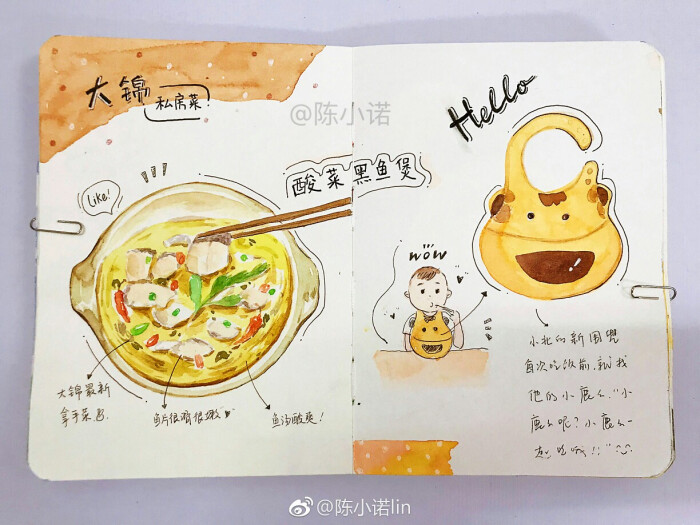 大锦
私房菜!
@陈小诺
Like!
酸菜黑鱼煲
大锦最新
拿手菜
鱼片很滑很嫩
鱼汤酸爽!
Hello
wow
小北的新围兜
每次吃饭前,就找
他的小鹿么."小
鹿么呢?小鹿么一
起吃哦!!"
@陈小诺lin